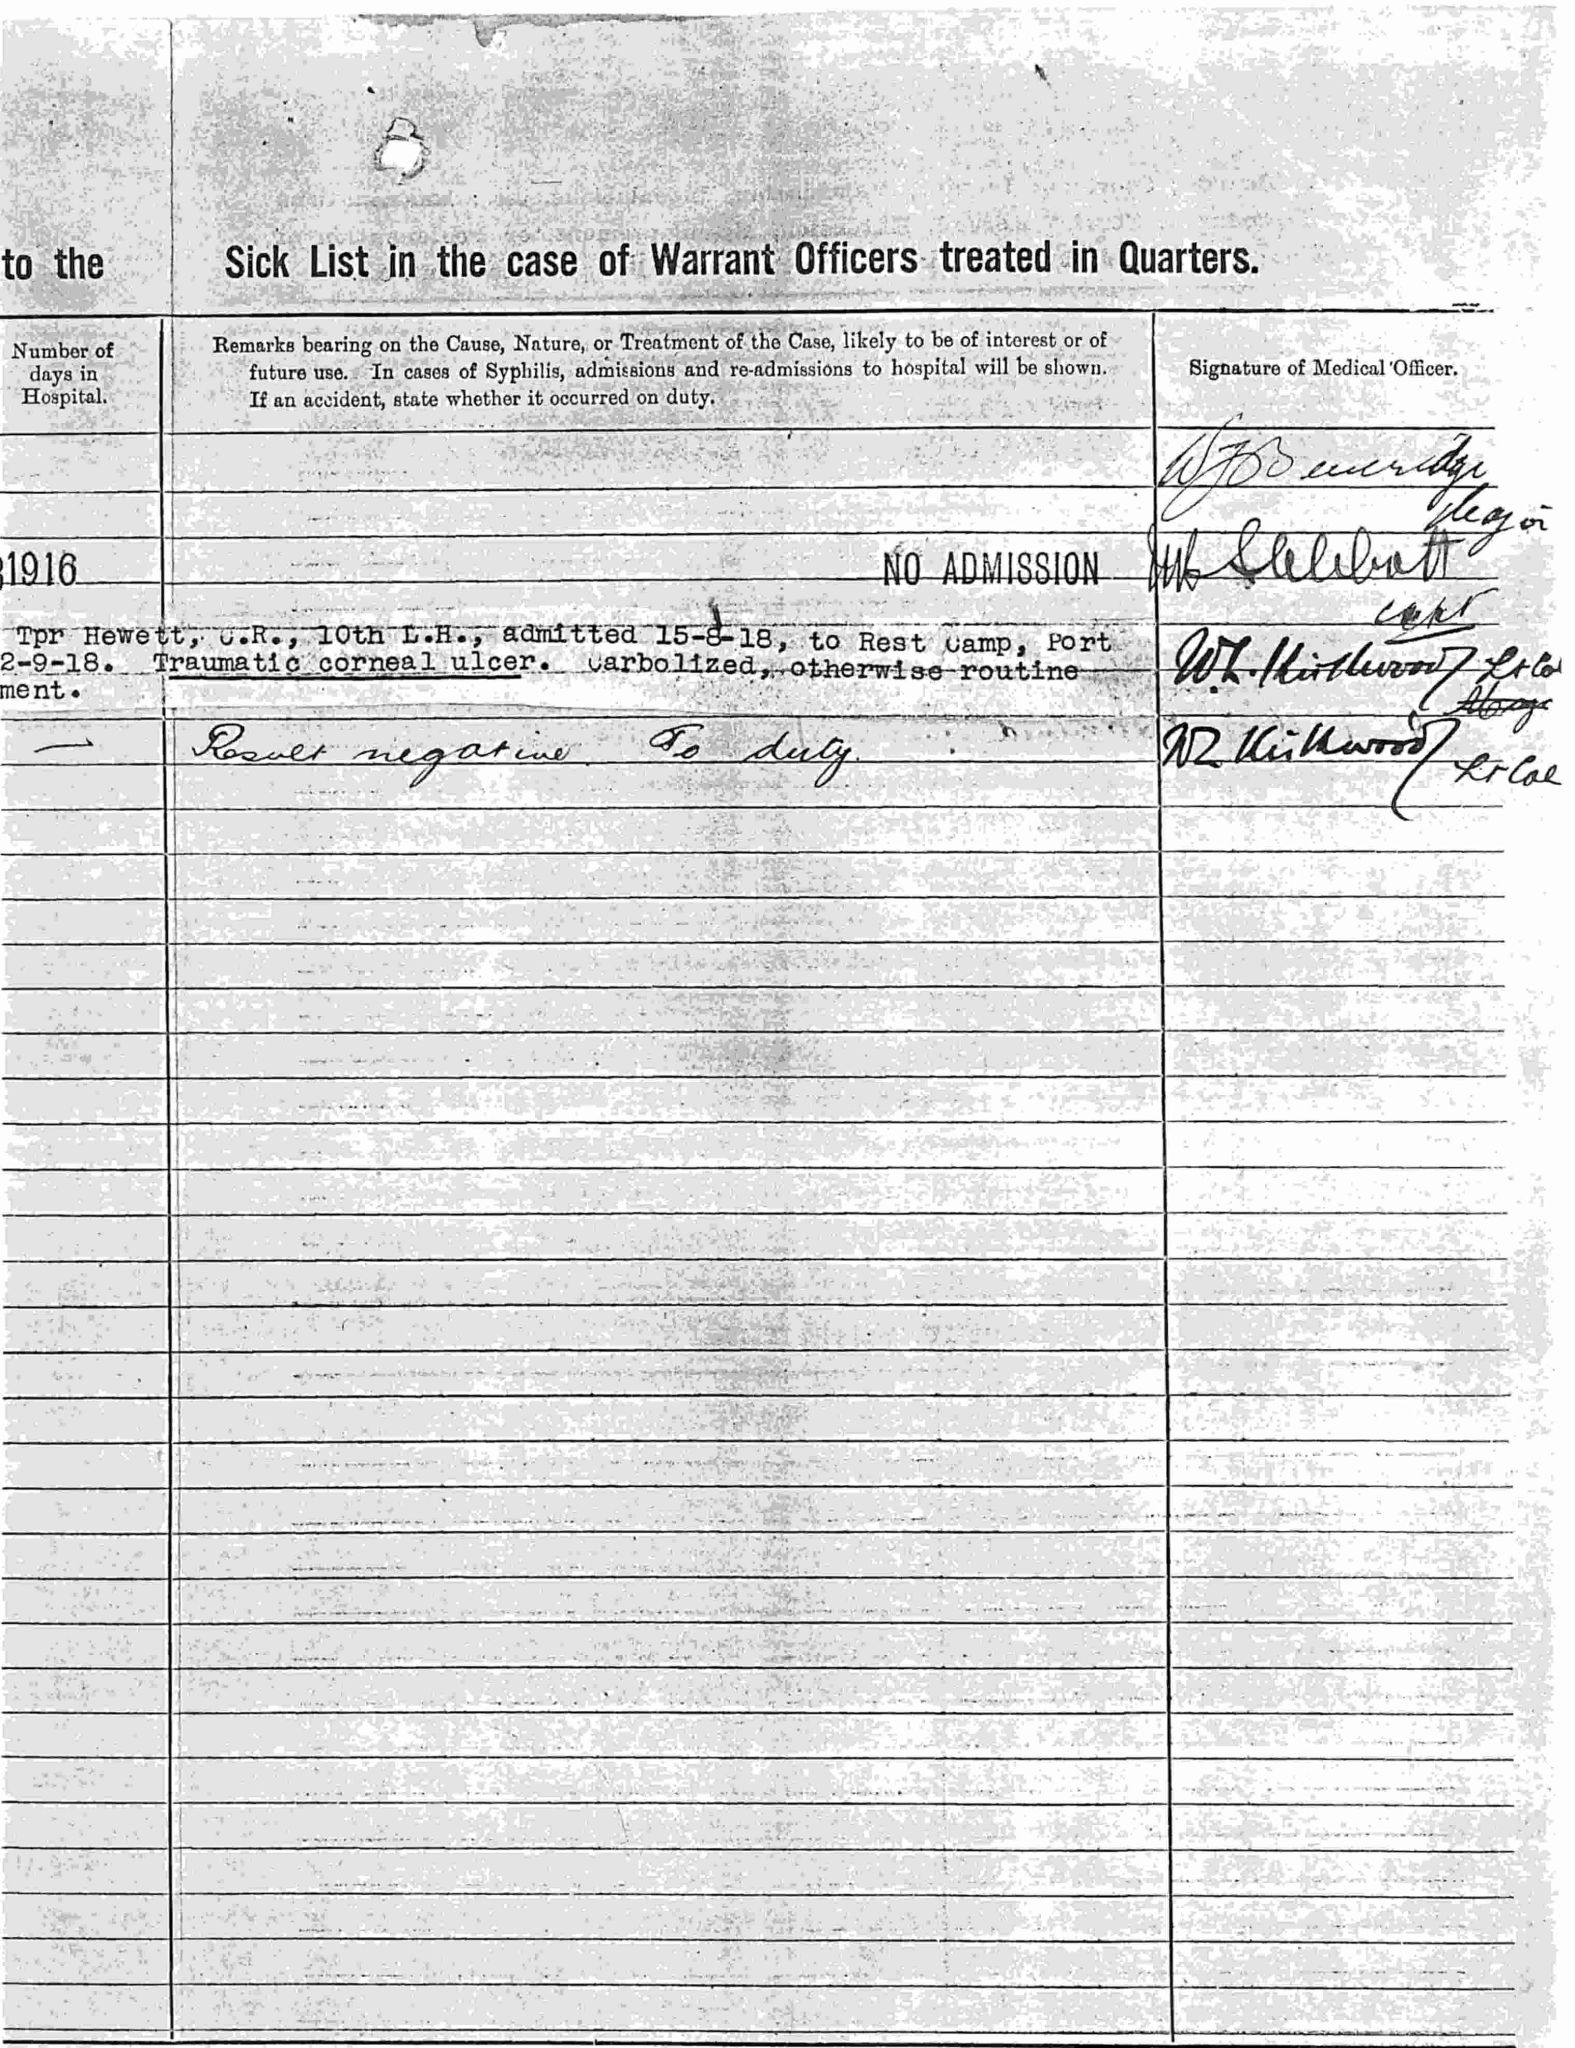 to the Sick List in the case of Warrant Officers treated in Quarters.
Number of
days in
Hospital.
Remarks bearing on the Cause, Nature, or Treatment of the Case, likely to be of interest or of
future use. In cases of Syphilis, admissions and re-admissions to hospital will be shown.
If an accident, state whether it occurred on duty.
Signature of Medical Officer.
W J Beveridge
Major
1916 NO ADMISSION
Capt
Tpr Hewett, C.R., 10th L.H., admitted 15-8-18, to Rest Camp, Port
2-9-18. Traumatic corneal ulcer. Carbolized, otherwise routine
ment.
W.L. Kirkwood Lt Col
— Result negative. To duty.
WL Kirkwood
Lt Col